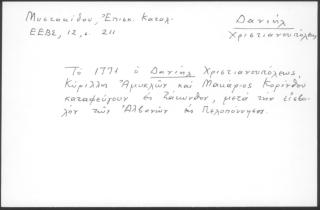 Μυστακίδου, Ἐπισκ. Κατάλ.
ΕΕΒΣ, 12, σ. 211
Δανιήλ
Χριστιανουπόλεως
Τό 1771 ὁ Δανιήλ Χριστιανουπόλεως,
Κύριλλος Ἀμυκλῶν καί Μακάριος Κορίνθου
καταφεύγουν εἰς Ζάκυνθον, μετά τήν εἰσβο-
λήν τῶν Ἀλβανῶν εἰς Πελοπόννησον.